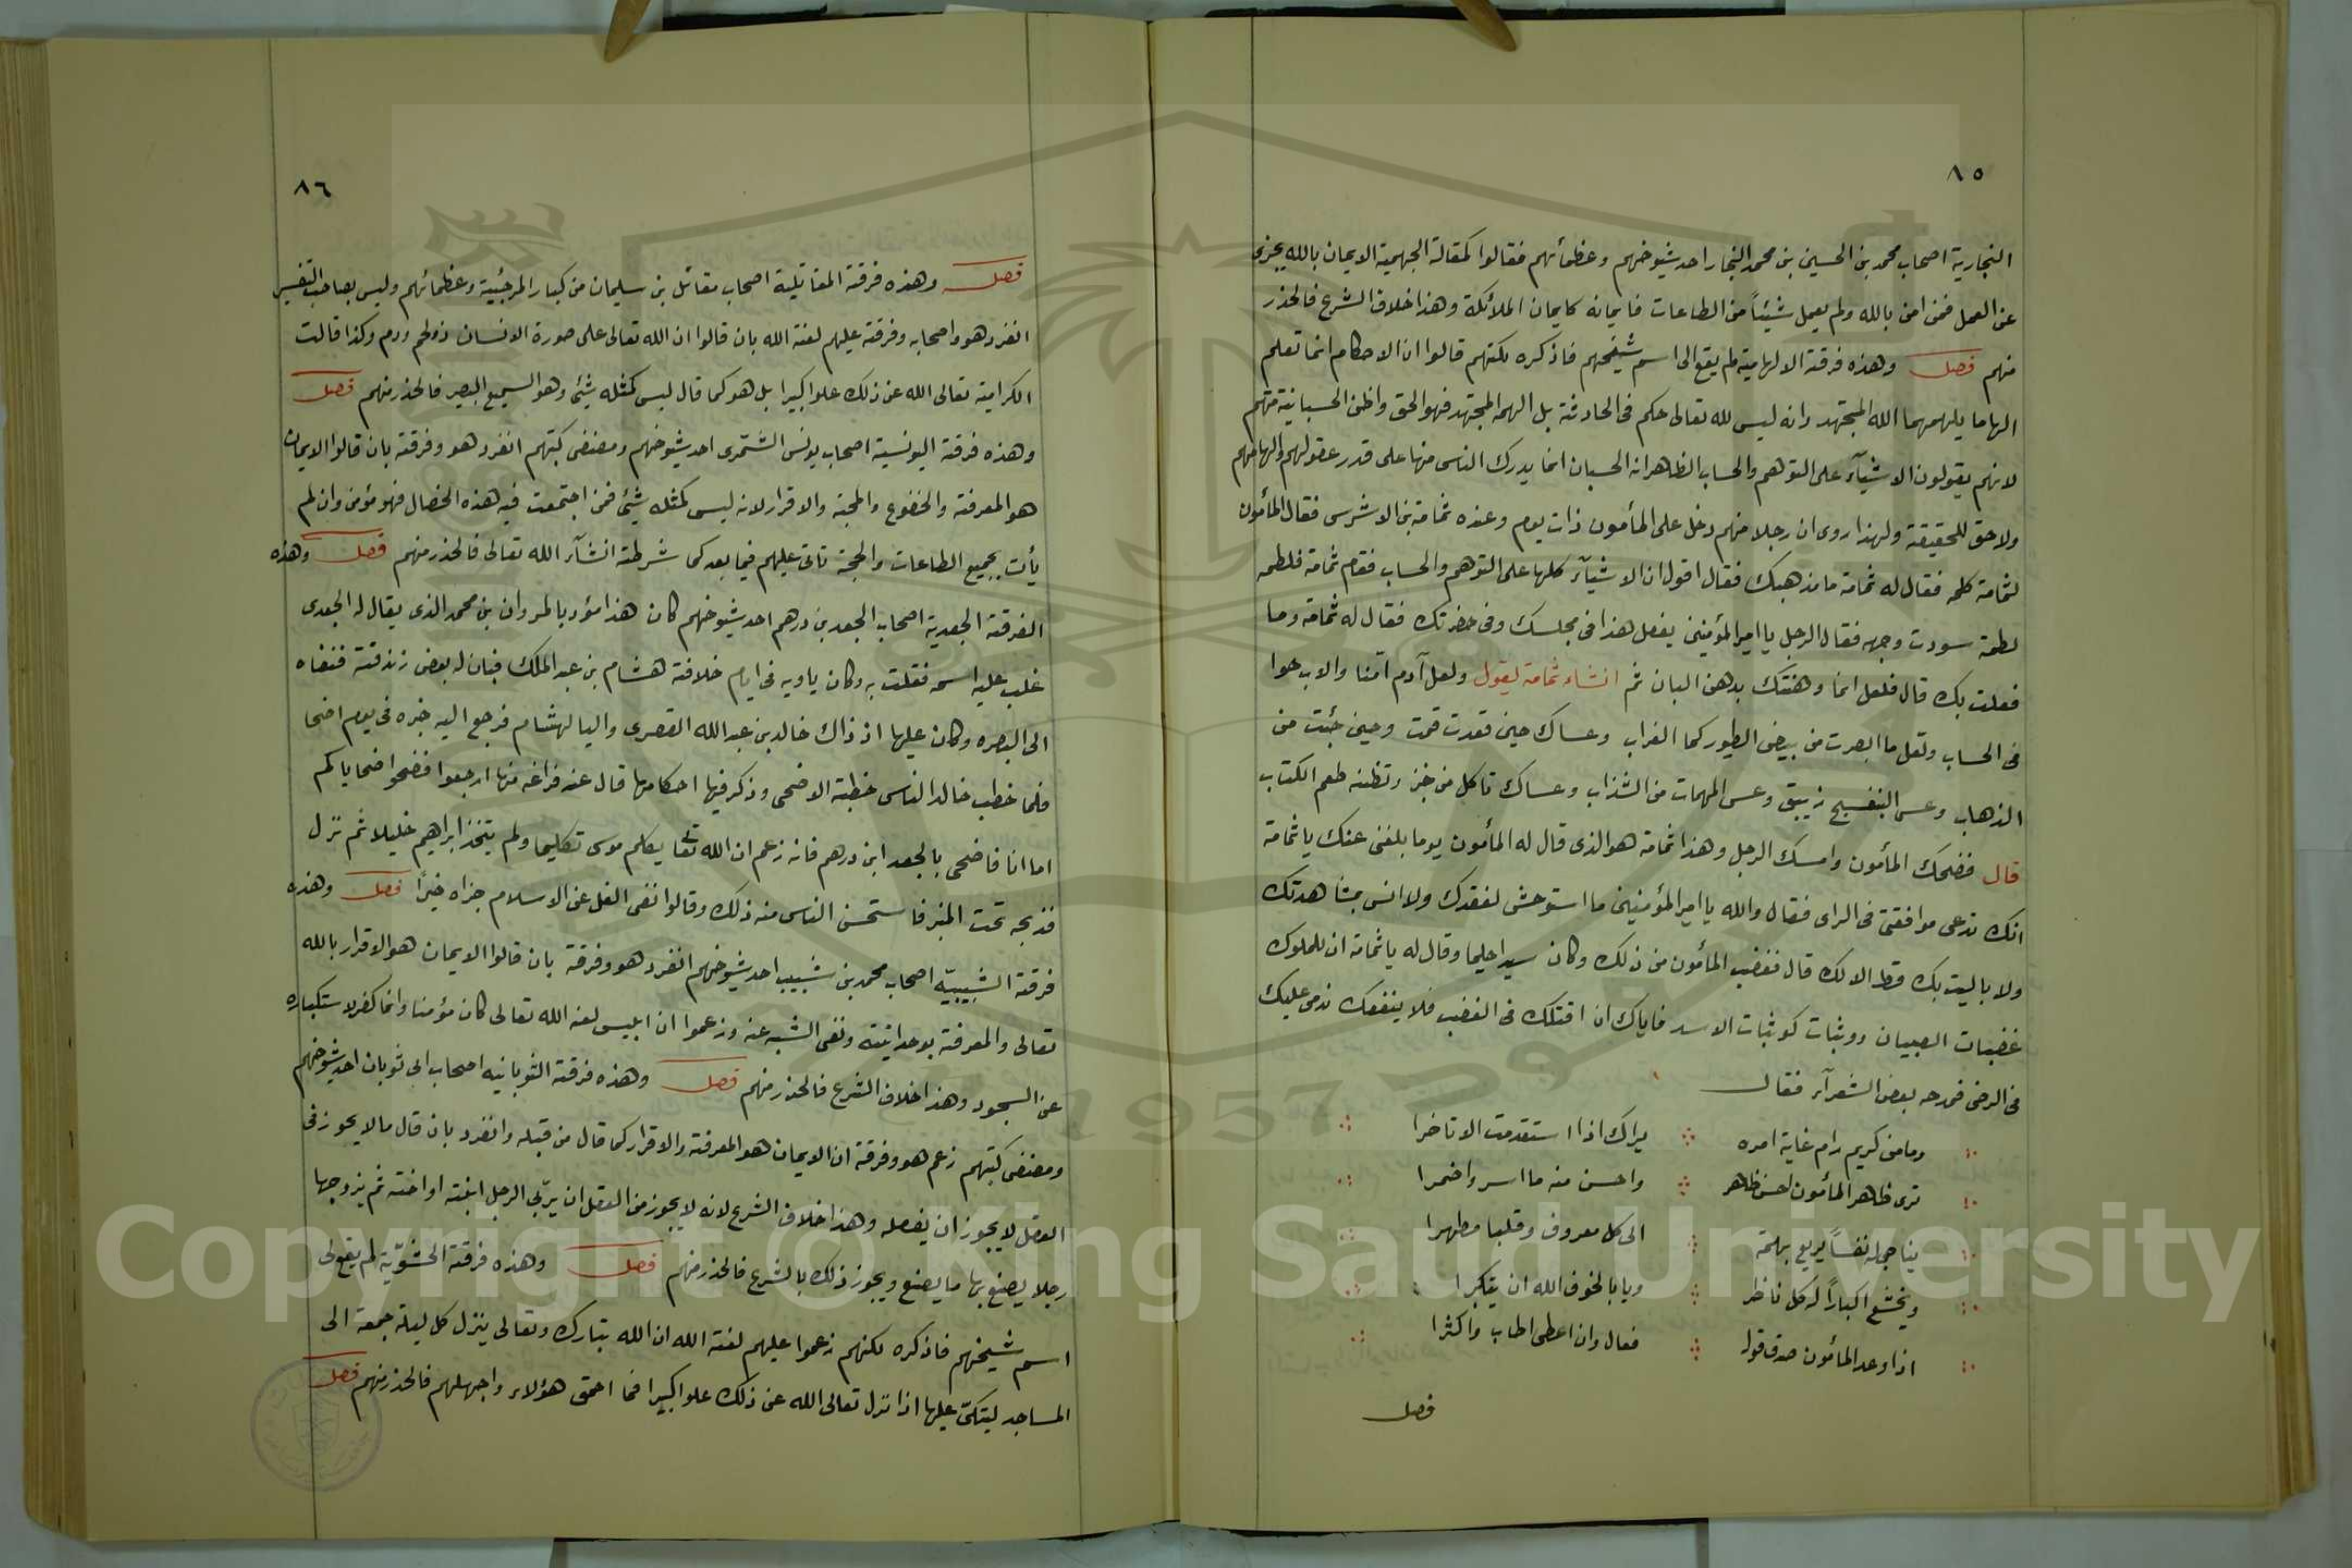 ٨٥
النجارية اصحاب محمد بن الحسين بن محمد النجار احد شيوخهم وعظمائهم فقالوا كمقالة الجهمية الايمان بالله يجزى
عن العمل فمن امن بالله ولم يعمل شيئاً من الطاعات فايمانه كايمان الملائكة وهذا خلاف الشرع فالحذر
منهم فصل وهذه فرقة الالهامية لم يقع الى اسم شيخهم فاذكره لكنهم قالوا ان الاحكام انما تعلم
الهاما يلهمهما الله المجتهد وانه ليس لله تعالى حكم فى الحادثة بل الهمه المجتهد فهو الحق واظن الحسبانية منهم
لانهم يقولون الاشيآء على التوهم والحساب الظاهر انه الحسبان انما يدرك الناس منها على قدر عقولهم والهامهم
ولا حق للحقيقة ولهذا روى ان رجلا منهم دخل على المأمون ذات يوم وعنده ثمامة بن الاشرس فقال المأمون
لثمامة كلمه فقال له ثمامة ما مذهبك فقال اقول ان الاشيآء كلها على التوهم والحساب فقام ثمامة فلطمه
لطمة سودت وجهه فقال الرجل يا امير المؤمنين يفعل هذا فى مجلسك وفى حضرتك فقال له ثمامة وما
فعلت بك قال فلعل انما دهنتك بدهن البان ثم انشاء ثمامة يقول ولعل آدم امنا والاب حوا
فى الحساب ولعل ما ابصرت من بيض الطيور كما الغراب وعساك حين قعدت قمت وحين جئت من
الذهاب وعسى البنفسج زيبق وعسى المهمات من الشذاب وعساك تاكل من خبز وتظنه طعم الكتاب
قال فضحك المأمون وامسك الرجل وهذا ثمامة هو الذى قال له المأمون يوما بلغنى عنك يا ثمامة
انك تدعى موافقتى فى الراى فقال والله يا امير المؤمنين ما استوحش لفقدك ولا انس بمشاهدتك
ولا باليت بك قط الا لك قال فغضب المأمون من ذلك وكان سيدا حليما وقال له يا ثمامة ان للملوك
غضبات الصبيان ووثبات كوثبات الاسد فاياك ان اقتلك فى الغضب فلا ينفعك ندمى عليك
فى الرضى فمدحه بعض الشعرآء فقال
وما من كريم رام غاية امره يراك اذا استقدمت الا تاخرا
ترى ظاهر المأمون احسن ظاهر واحسن منه ما اسر واضمرا
يناجى له نفساً يريع بهمة الى كل معروف وقلبا مطهرا
ويخشع اكباراً له كل ناظر ويابا لخوف الله ان يتكبرا
اذا وعد المأمون صدق قوله فعال وان اعطى اطاب واكثرا
فصل
٨٦
فصل وهذه فرقة المقاتلية اصحاب مقاتل بن سليمان من كبار المرجئية وعظمائهم وليس بصاحب التفسير
انفرد هو واصحابه وفرقته عليهم لعنة الله بان قالوا ان الله تعالى على صورة الانسان ذو لحم ودم وكذا قالت
الكرامية تعالى الله عن ذلك علوا كبيرا بل هو كما قال ليس كمثله شئ وهو السميع البصير فالحذر منهم فصل
وهذه فرقة اليونسية اصحاب يونس الشمرى احد شيوخهم ومصنفى كتبهم انفرد هو وفرقته بان قالوا الايمان
هو المعرفة والخضوع والمحبة والاقرار لانه ليس كمثله شئ فمن اجتمعت فيه هذه الخصال فهو مؤمن وان لم
يأت بجميع الطاعات والحجة تاتى عليهم فيما بعد كما شرطته انشآء الله تعالى فالحذر منهم فصل وهذه
الفرقة الجعدية اصحاب الجعد بن درهم احد شيوخهم كان هذا مؤدبا لمروان بن محمد الذى يقال له الجعدى
غلب عليه اسمه فقلت به وكان ياويه فى ايام خلافة هشام بن عبد الملك فبان له بعض زندقته فنفاه
الى البصره وكان عليها اذ ذاك خالد بن عبد الله القصرى واليا لهشام فرجع اليه خبره فى يوم اضحا
فلما خطب خالد الناس خطبة الاضحى وذكر فيها احكامها قال عند فراغه منها ارجعوا فضحوا ضحاياكم
اما انا فاضحى بالجعد ابن درهم فانه زعم ان الله تعا يكلم موسى تكليما ولم يتخذ ابراهيم خليلا ثم نزل
فذبحه تحت المنبر فاستحسن الناس منه ذلك وقالوا نفى الغل عن الاسلام جزاه خيرًا فصل وهذه
فرقة الشبيبيّه اصحاب محمد بن شبيب احد شيوخهم انفرد هو وفرقة بان قالوا الايمان هو الاقرار بالله
تعالى والمعرفة بوحدانيته ونفى الشبه عنه وزعموا ان ابليس لعنه الله تعالى كان مؤمنا وانما كفر لاستكباره
عن السجود وهذا خلاف الشرع فالحذر منهم فصل وهذه فرقة الثوبانيه اصحاب ابى ثوبان احد شيوخهم
ومصنفى كتبهم زعم هو وفرقة ان الايمان هو المعرفة والاقرار كما قال من قبله وانفرد بان قال ما لا يجوز فى
العقل لا يجوز ان يفعله وهذا خلاف الشرع لانه لا يجوز من العقل ان يربّى الرجل ابنته او اخته ثم يزوجها
رجلا يصنع بها ما يصنع ويجوز ذلك بالشرع فالحذر منهم فصل وهذه فرقة الحشويّة لم يقع لى
اسم شيخهم فاذكره لكنهم زعموا عليهم لعنة الله ان الله تبارك وتعالى ينزل كل ليلة جمعة الى
المساجد ليتكئ عليها اذا نزل تعالى الله عن ذلك علوا كبيرا فما احمق هؤلاء واجهلهم فالحذر منهم فصل
1957
Copyright © King Saud University